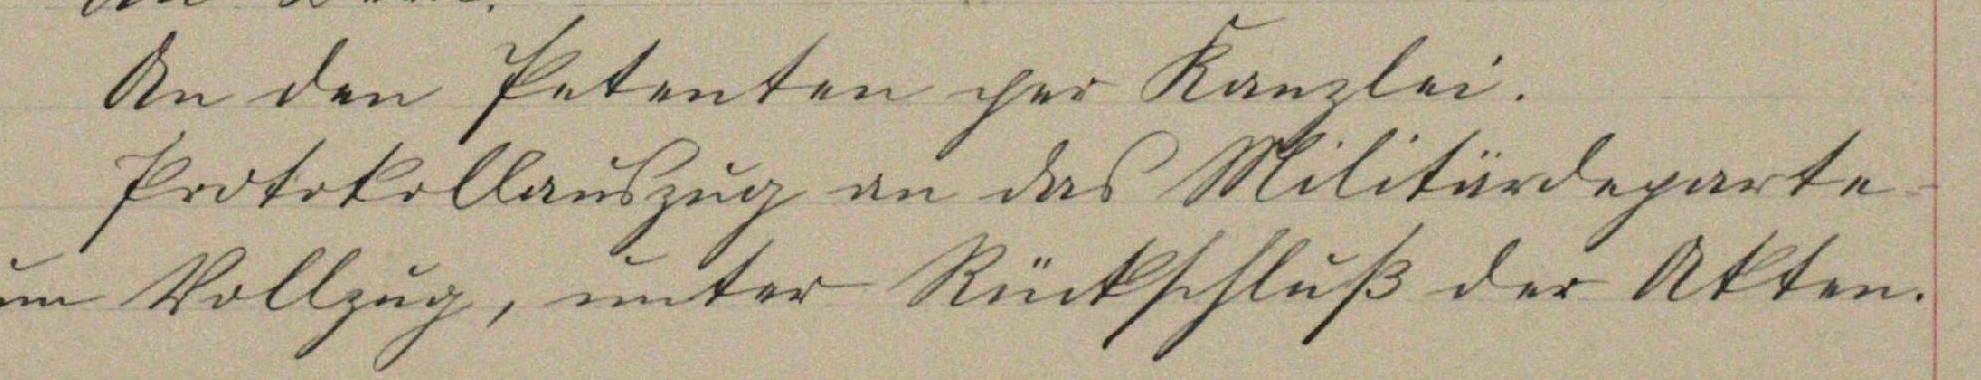 An den Petenten per Kanzlei.
Protokollauszug an das Militärdeparte-
um Vollzug, unter Rückschluß der Akten.